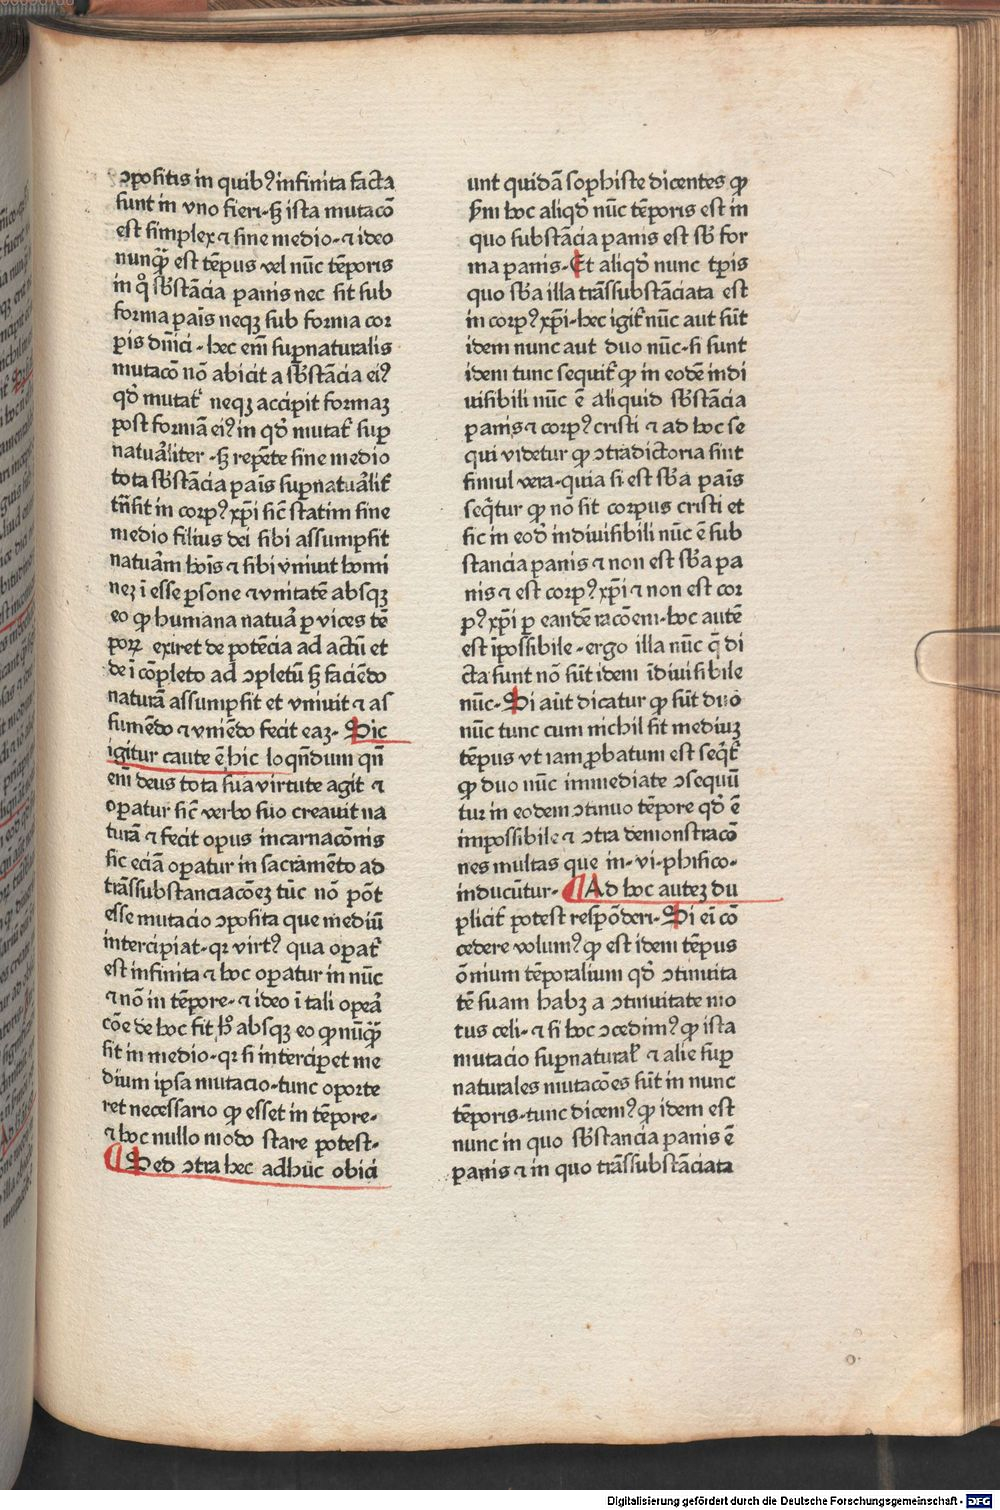 ↄpositis in quibꝰ infinita facta
sunt in vno fieri. sꝫ ista mutacō
est simplex ⁊ sine medio. ⁊ ideo
nunqꝫ̄ est tēpus vel nūc tēporis
in qͦ sb̄stācia panis nec sit sub
forma pais̄ neqꝫ sub forma cor
pis dnīci. hec em̄ supnaturalis
mutacō nō abicit a sb̄stācia eiꝰ
qd̄ mutat̉ neqꝫ accipit formaꝫ
post formā eiꝰ in qd̄ mutat̉ sup
natuāliter. sꝫ repēte sine medio
tota sb̄stācia pais̄ supnatuālit̉
tn̄sit in corpꝰ xp̄i sic̄ statim sine
medio filius dei sibi assumpsit
natuām hoīs ⁊ sibi vniuit homi
neꝫ ī esse psone ⁊ vnitatē absqꝫ
eo qp humana natuā p vices tē
porꝝ exiret de potēcia ad actū et
de ī cōpleto ad ↄpletū sꝫ faciēdo
naturā assumpsit et vniuit ⁊ as
sumēdo ⁊ vniēdo fecit eaꝫ. Sic
igitur caute ē hic loqn̄dum qn̄
em̄ deus tota sua virtute agit ⁊
opatur sic̄ verbo suo creauit na
turā ⁊ fecit opus incarnacōnis
sic eciā opatur in sacramēto ad
trāssubstanciacōeꝫ tūc nō pōt
esse mutacio ↄposita que mediū
intercipiat. qꝛ virtꝰ qua opat̉
est infinita ⁊ hoc opatur in nūc
⁊ nō in tēpore. ⁊ ideo ī tali opeā
cōe de hoc fit hͦ absqꝫ eo qp nūqꝫ̄
sit in medio. qꝛ si intercipet me
dium ipsa mutacio. tunc oporte
ret necessario qp esset in tēpore.
⁊ hoc nullo modo stare potest.
¶ Sed ↄtra hec adhūc obici
unt quidā sophiste dicentes qp
sm̄ hoc aliqd̄ nūc tēporis est in
quo substācia panis est sb̄ for
ma panis. Et aliqd̄ nunc tp̄is
quo sb̄a illa trāssubstāciata est
in corpꝰ xp̄i. hec igit̉ nūc aut sūt
idem nunc aut duo nūc. si sunt
idem tunc sequit̉ qp in eodē indi
uisibili nūc ē aliquid sb̄stācia
panis ⁊ corpꝰ cristi ⁊ ad hoc se
qui videtur qp ↄtradictoria sint
simul vera. quia si est sb̄a pais̄
seqt̄ur qp nō sit corpus cristi et
sic in eod̄ indiuisibili nūc ē sub
stancia panis ⁊ non est sb̄a pa
nis ⁊ est corpꝰ xp̄i ⁊ non est cor
pꝰ xp̄i p eandē racōem. hoc autē
est īpossibile. ergo illa nūc q̄ di
cta sunt nō sūt idem īdiuisibile
nūc. Si aūt dicatur qp sūt duo
nūc tunc cum nichil sit mediuꝫ
tēpus vt iam pbatum est seqt̉
qp duo nūc immediate ↄsequū
tur in eodem ↄtinuo tēpore qd̄ ē
impossibile ⁊ ↄtra demonstracō
nes multas que in. vi. phisico.
inducūtur. ¶ Ad hoc auteꝫ du
plicit̉ potest respōderi. Si em̄ cō
cedere volumꝰ qp est idem tēpus
ōnium tēporalium qd̄ ↄtinuita
tē suam habꝫ a ↄtinuitate mo
tus celi. ⁊ si hoc ↄcedimꝰ qp ista
mutacio supnatural̉ ⁊ alie sup
naturales mutacōes sūt in nunc
tēporis. tunc dicemꝰ qp idem est
nunc in quo sb̄stancia panis ē
panis ⁊ in quo trāssubstāciata
Digitalisierung gefördert durch die Deutsche Forschungsgemeinschaft - DFG